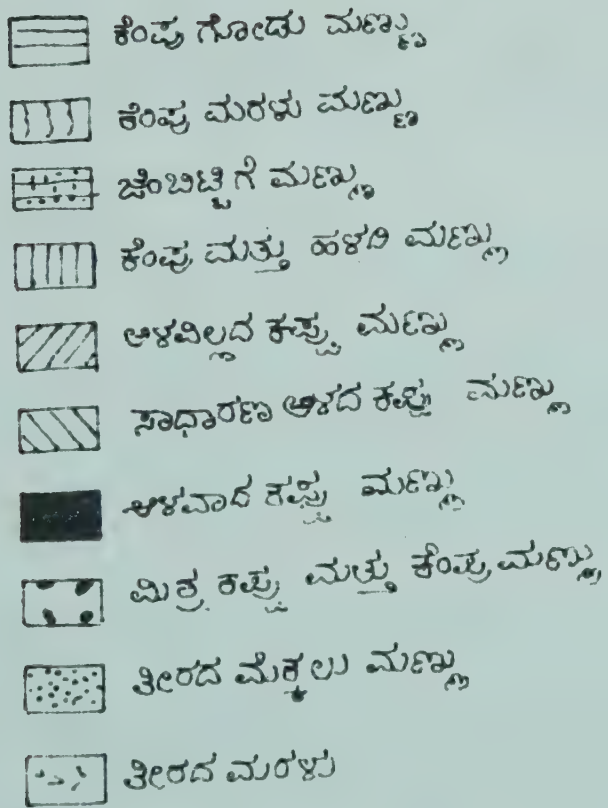 ಕೆಂಪು ಗೋಡು ಮಣ್ಣು
ಕೆಂಪು ಮರಳು ಮಣ್ಣು
ಜೆಂಬಿಟ್ಟಿಗೆ ಮಣ್ಣು
ಕೆಂಪು ಮತ್ತು ಹಳದಿ ಮಣ್ಣು
ಆಳವಿಲ್ಲದ ಕಪ್ಪು ಮಣ್ಣು
ಸಾಧಾರಣ ಆಳದ ಕಪ್ಪು ಮಣ್ಣು
ಆಳವಾದ ಕಪ್ಪು ಮಣ್ಣು
ಮಿಶ್ರ ಕಪ್ಪು ಮತ್ತು ಕೆಂಪು ಮಣ್ಣು
ತೀರದ ಮೆಕ್ಕಲು ಮಣ್ಣು
ತೀರದ ಮರಳು